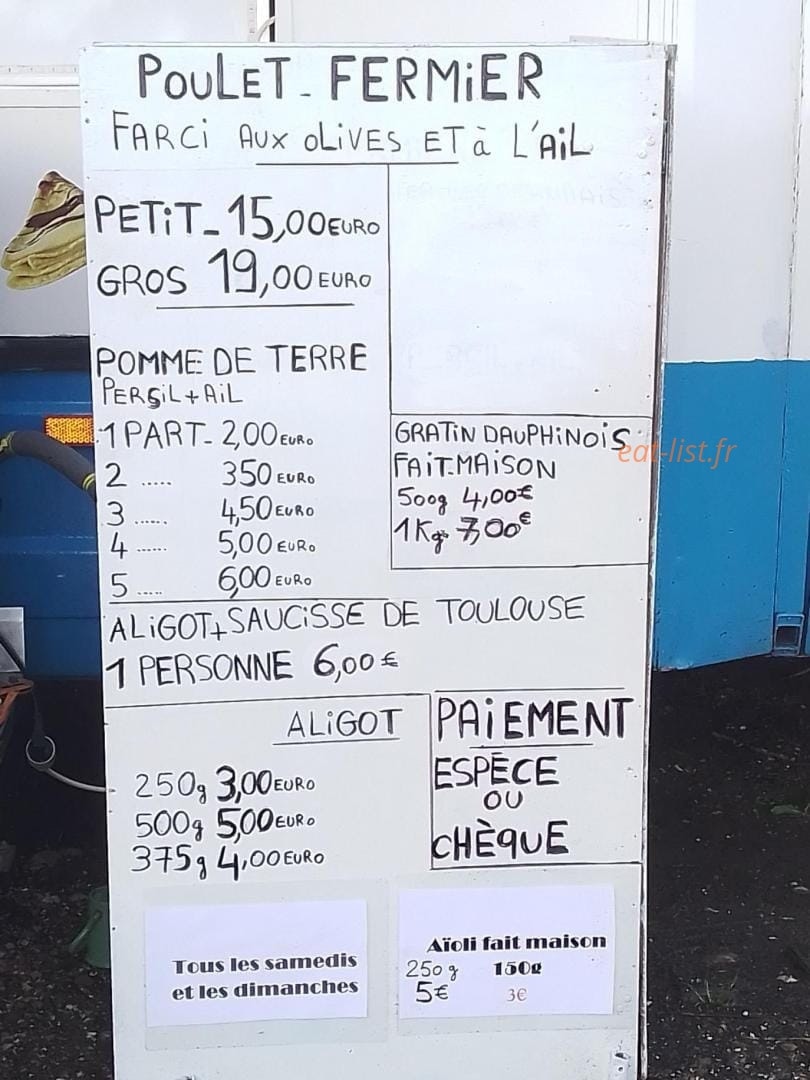 POULET - FERMiER
FARCi AUX OLiVES ET à L'AiL
PETiT - 15,00 EURO
GROS 19,00 EURO
POMME DE TERRE
PERSiL + AiL
1 PART - 2,00 EURO
2 ..... 350 EURO
3 ...... 4,50 EURO
4 ...... 5,00 EURO
5 ..... 6,00 EURO
GRATiN DAUPHiNOiS
FAiT-MAiSON
500g 4,00€
1Kg 7,00€
eat-list.fr
ALiGOT + SAUCiSSE DE TOULOUSE
1 PERSONNE 6,00€
ALiGOT
250g 3,00 EURO
500g 5,00 EURO
375g 4,00 EURO
PAiEMENT
ESPÈCE
OU
CHÈQUE
Tous les samedis
et les dimanches
Aïoli fait maison
250 g 150g
5€ 3€